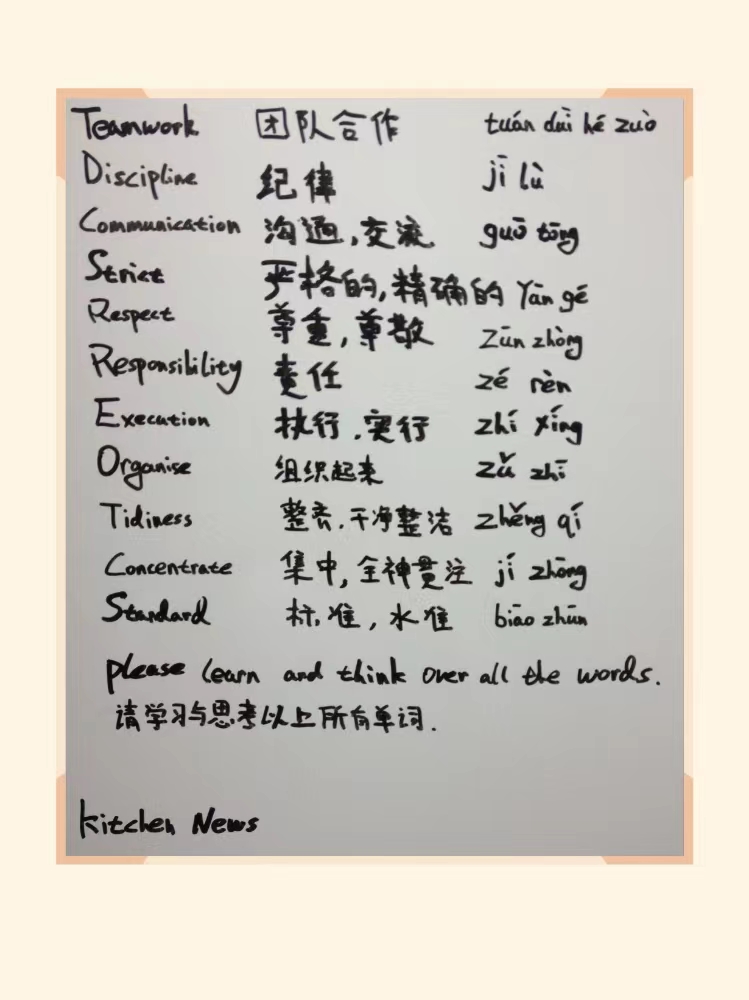 Teamwork 团队合作 tuán duì hé zuò
Discipline 纪律 jǐ lǜ
Communication 沟通,交流 guō tōng
Strict 严格的,精确的 Yán gé
Respect 尊重,尊敬 Zūn zhòng
Responsibility 责任 zé rèn
Execution 执行.实行 zhí xíng
Organise 组织起来 zǔ zhī
Tidiness 整齐.干净整洁 zhěng qí
Concentrate 集中,全神贯注 jí zhōng
Standard 标准,水准 biāo zhǔn
please learn and think over all the words.
请学习与思考以上所有单词.
kitchen News